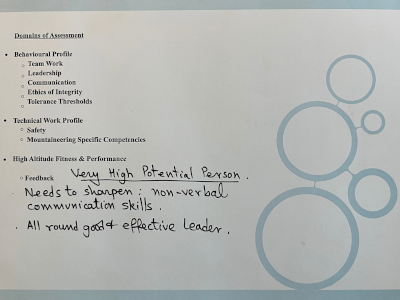 Domains of Assessment
• Behavioural Profile
○ Team Work
○ Leadership
○ Communication
○ Ethics of Integrity
○ Tolerance Thresholds
○
• Technical Work Profile
○ Safety
○ Mountaineering Specific Competencies
• High Altitude Fitness & Performance
○ Feedback Very High Potential Person.
Needs to sharpen: non-verbal
communication skills.
. All round good & effective Leader.